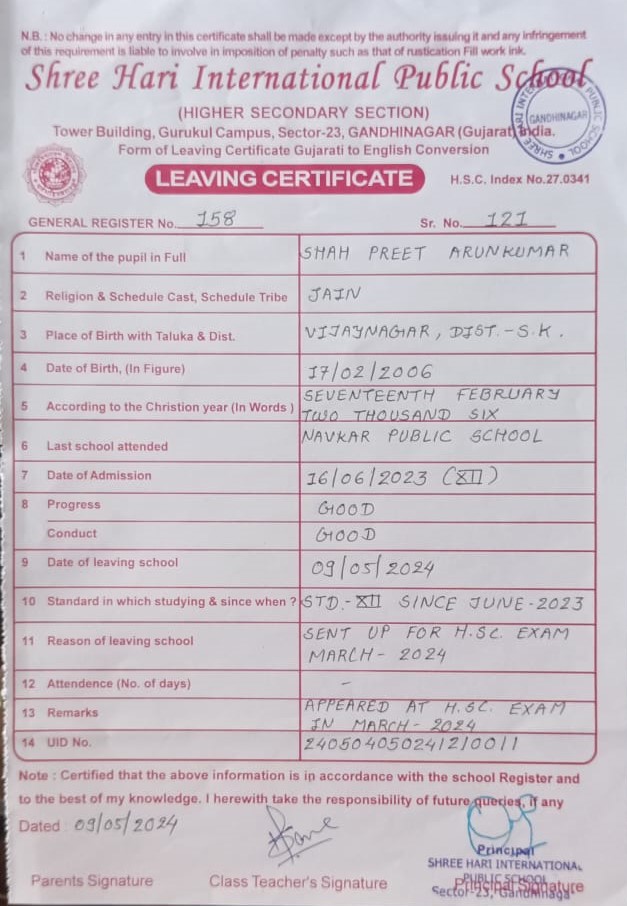 N.B. : No change in any entry in this certificate shall be made except by the authority issuing it and any infringement
of this requirement is liable to involve in imposition of penalty such as that of rustication Fill work ink.
Shree Hari International Public School
(HIGHER SECONDARY SECTION)
Tower Building, Gurukul Campus, Sector-23, GANDHINAGAR (Gujarat) India.
Form of Leaving Certificate Gujarati to English Conversion
LEAVING CERTIFICATE
H.S.C. Index No.27.0341
GANDHINAGAR
GENERAL REGISTER No. 158 Sr. No. 121
1 Name of the pupil in Full SHAH PREET ARUNKUMAR
2 Religion & Schedule Cast, Schedule Tribe JAIN
3 Place of Birth with Taluka & Dist. VIJAYNAGAR, DIST.-S.K.
4 Date of Birth, (In Figure) 17/02/2006
5 According to the Christion year (In Words) SEVENTEENTH FEBRUARY
TWO THOUSAND SIX
6 Last school attended NAVKAR PUBLIC SCHOOL
7 Date of Admission 16/06/2023 (XII)
8 Progress GOOD
Conduct GOOD
9 Date of leaving school 09/05/2024
10 Standard in which studying & since when ? STD.-XII SINCE JUNE-2023
11 Reason of leaving school SENT UP FOR H.SC. EXAM
MARCH- 2024
12 Attendence (No. of days) -
13 Remarks APPEARED AT H.SC. EXAM
IN MARCH-2024
14 UID No. 240504050241210011
Note : Certified that the above information is in accordance with the school Register and
to the best of my knowledge. I herewith take the responsibility of future queries, if any
Dated : 09/05/2024
Principal
SHREE HARI INTERNATIONAL
PUBLIC SCHOOL
Sector-23, Gandhinagar
Parents Signature Class Teacher's Signature Principal Signature